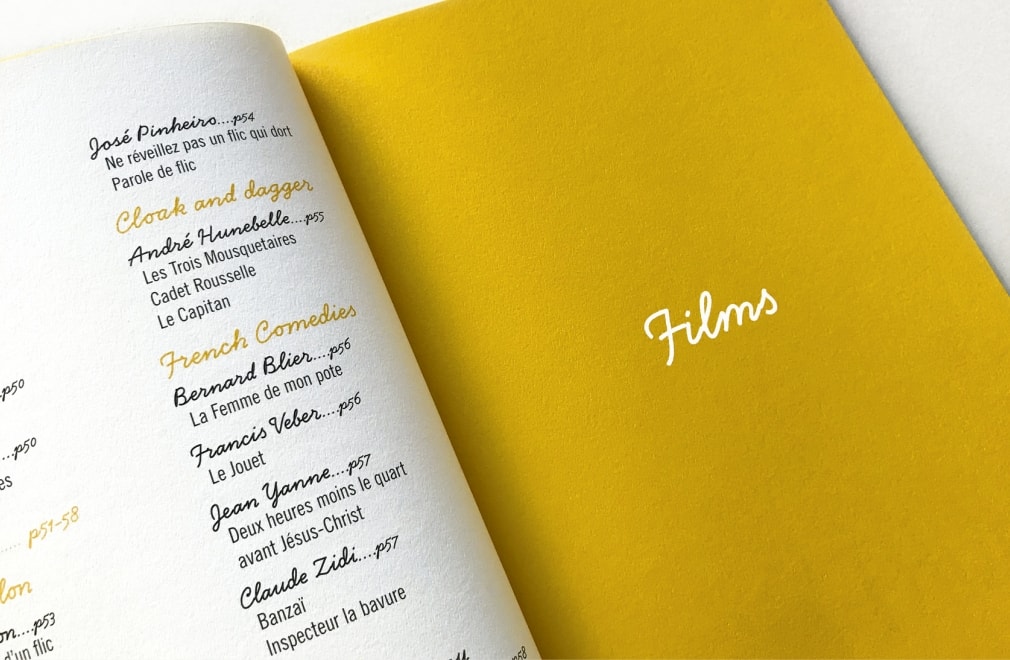 p50
...p50
es
..... p51-58
lon
on....p53
d'un flic
José Pinheiro....p54
Ne réveillez pas un flic qui dort
Parole de flic
Cloak and dagger
André Hunebelle....p55
Les Trois Mousquetaires
Cadet Rousselle
Le Capitan
French Comedies
Bernard Blier....p56
La Femme de mon pote
Francis Veber....p56
Le Jouet
Jean Yanne....p57
Deux heures moins le quart
avant Jésus-Christ
Claude Zidi....p57
Banzaï
Inspecteur la bavure
p58
Films